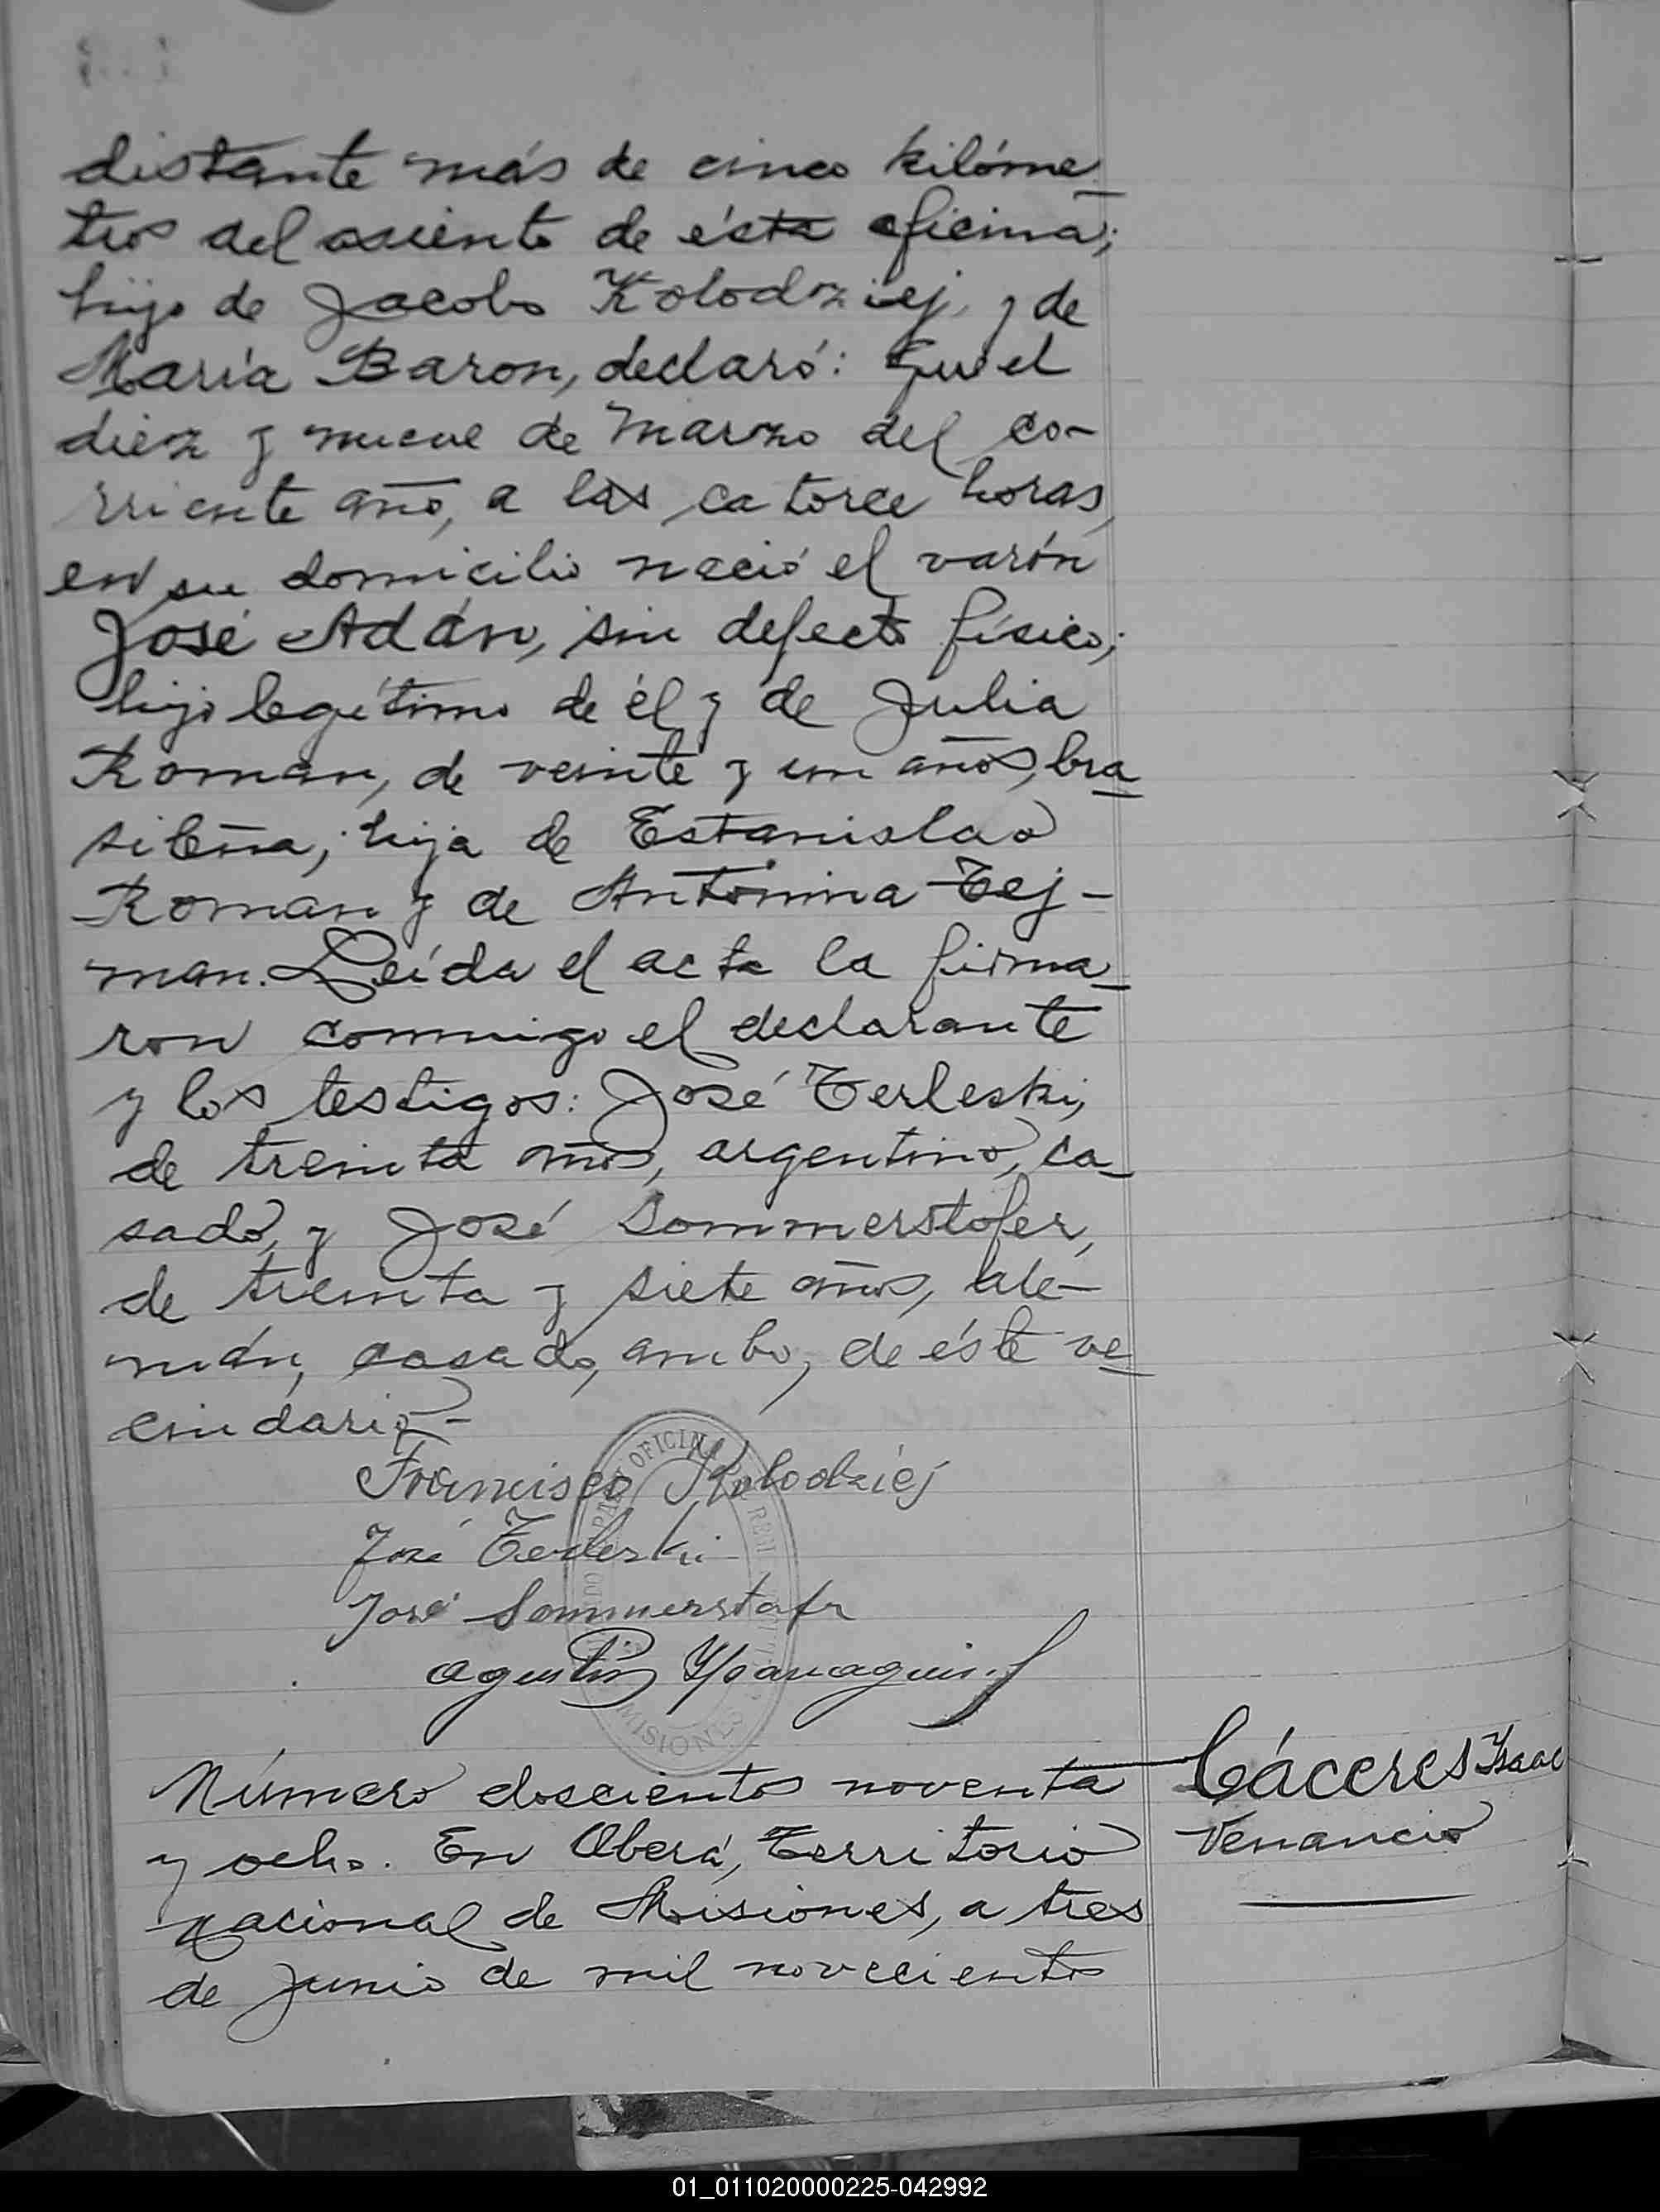 distante más de cinco kilóme_
tros del asiento de ésta oficina;
hijo de Jacobo Kolodziej, y de
María Baron, declaró: Que el
diez y nueve de Marzo del co-
rriente año, a las catorce horas,
en su domicilio nació el varón
José Adán, sin defecto físico;
hijo legítimo de él y de Julia
Roman, de veinte y un años, bra_
sileña; hija de Estanislao
Roman y de Antonina Tej-
man. Leída el acta la firma_
ron conmigo el declarante
y los testigos: José Terleski,
de treinta años, argentino, ca_
sado, y José Sommerstofer,
de treinta y siete años, ale-
mán, casado, ambos, de éste ve_
cindario-
Francisco Kolodziej
José Terleski
José Sommerstofer
Agustín
OFICINA
MISIONES
Número doscientos noventa
y ocho. En Oberá, Territorio
Nacional de Misiones, a tres
de Junio de mil novecientos
Cáceres Isaac
Venancio
01_011020000225-042992